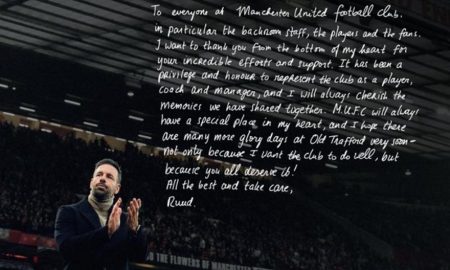 To everyone at Manchester United football club.
in particular the backroom staff, the players and the fans.
I want to thank you from the bottom of my heart for
your incredible efforts and support. It has been a
privilege and honour to represent the club as a player,
coach and manager, and I will always cherish the
memories we have shared together. M.U.F.C will always
have a special place in my heart, and I hope there
are many more glory days at Old Trafford very soon-
not only because I want the club to do well, but
because you all deserve it!
All the best and take care,
Ruud.
TO THE FLOWERS OF MANCHESTER